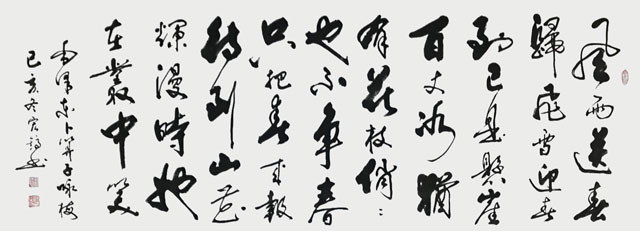 風雨送春
歸飛雪迎春
到已是懸崖
百丈冰猶
有花枝俏〻
也不争春
只把春来報
待到山花
爛漫時她
在叢中笑
毛澤東卜算子咏梅
己亥冬宏书